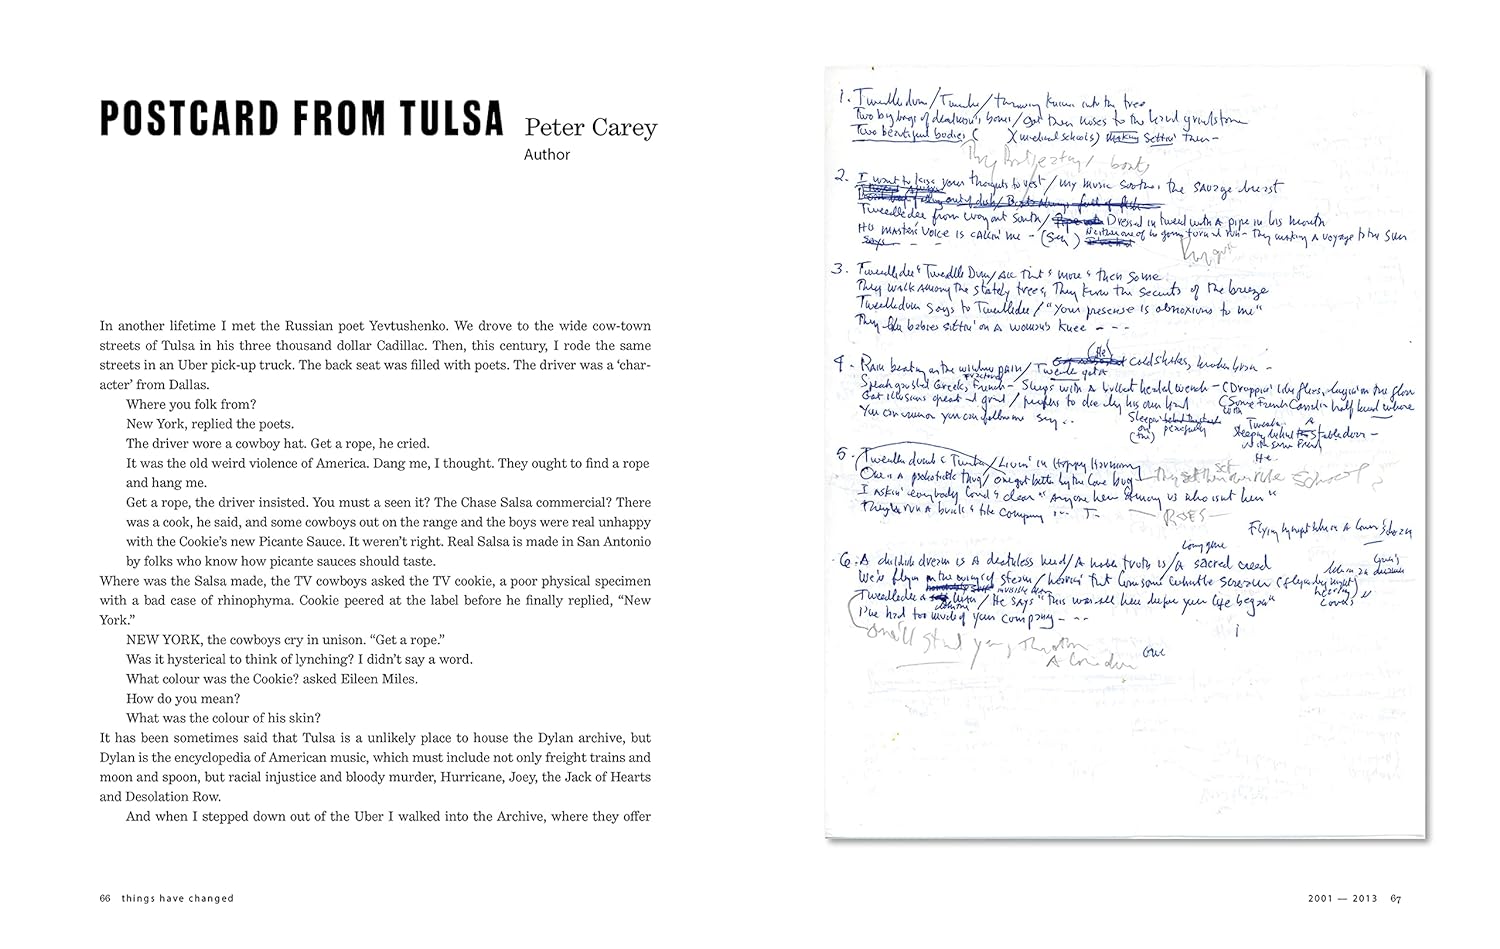 POSTCARD FROM TULSA Peter Carey
Author
In another lifetime I met the Russian poet Yevtushenko. We drove to the wide cow-town
streets of Tulsa in his three thousand dollar Cadillac. Then, this century, I rode the same
streets in an Uber pick-up truck. The back seat was filled with poets. The driver was a ‘char-
acter’ from Dallas.
Where you folk from?
New York, replied the poets.
The driver wore a cowboy hat. Get a rope, he cried.
It was the old weird violence of America. Dang me, I thought. They ought to find a rope
and hang me.
Get a rope, the driver insisted. You must a seen it? The Chase Salsa commercial? There
was a cook, he said, and some cowboys out on the range and the boys were real unhappy
with the Cookie’s new Picante Sauce. It weren’t right. Real Salsa is made in San Antonio
by folks who know how picante sauces should taste.
Where was the Salsa made, the TV cowboys asked the TV cookie, a poor physical specimen
with a bad case of rhinophyma. Cookie peered at the label before he finally replied, “New
York.”
NEW YORK, the cowboys cry in unison. “Get a rope.”
Was it hysterical to think of lynching? I didn’t say a word.
What colour was the Cookie? asked Eileen Miles.
How do you mean?
What was the colour of his skin?
It has been sometimes said that Tulsa is a unlikely place to house the Dylan archive, but
Dylan is the encyclopedia of American music, which must include not only freight trains and
moon and spoon, but racial injustice and bloody murder, Hurricane, Joey, the Jack of Hearts
and Desolation Row.
And when I stepped down out of the Uber I walked into the Archive, where they offer
66 things have changed
1. Tweedle dum / throwing knives into the tree
Two big bags of dead man's bones / Got their noses to the grindstone
Two beautiful bodies ( ) (medical schools) Making Settin' them -
2. I want to your thoughts to rest / my music soothes the savage breast
Tweedle dee from way out South / Dressed in tweed with a pipe in his mouth
His masters voice is callin' me - (Sun) - They making A voyage to the Sun
Says - - -
3. Tweedle dee & Tweedle Dum / All that & more & then some
They walk among the stately trees, They know the secrets of the breeze
Tweedle dum says to Tweedle dee / "Your presense is obnoxious to me"
They like babies sittin' on A woman's knee - - -
4. Rain beating on the window pain /
(He)
Speak Greek, French - Sleeps with a
Got illusions / prefers to die by his own hand
You can you can follow me say . .
5. Livin' in Happy Harmony
One is A thug / one got bitten by the love bug
I askin' everybody loud & clear "Anyone here among us who isnt here"
They run A brick & tile company
6. A childish dream is A deathless need / A noble truth is / A sacred creed
He says "This was all here before your life began"
I've had too much of your company - - -
2001 — 2013 67